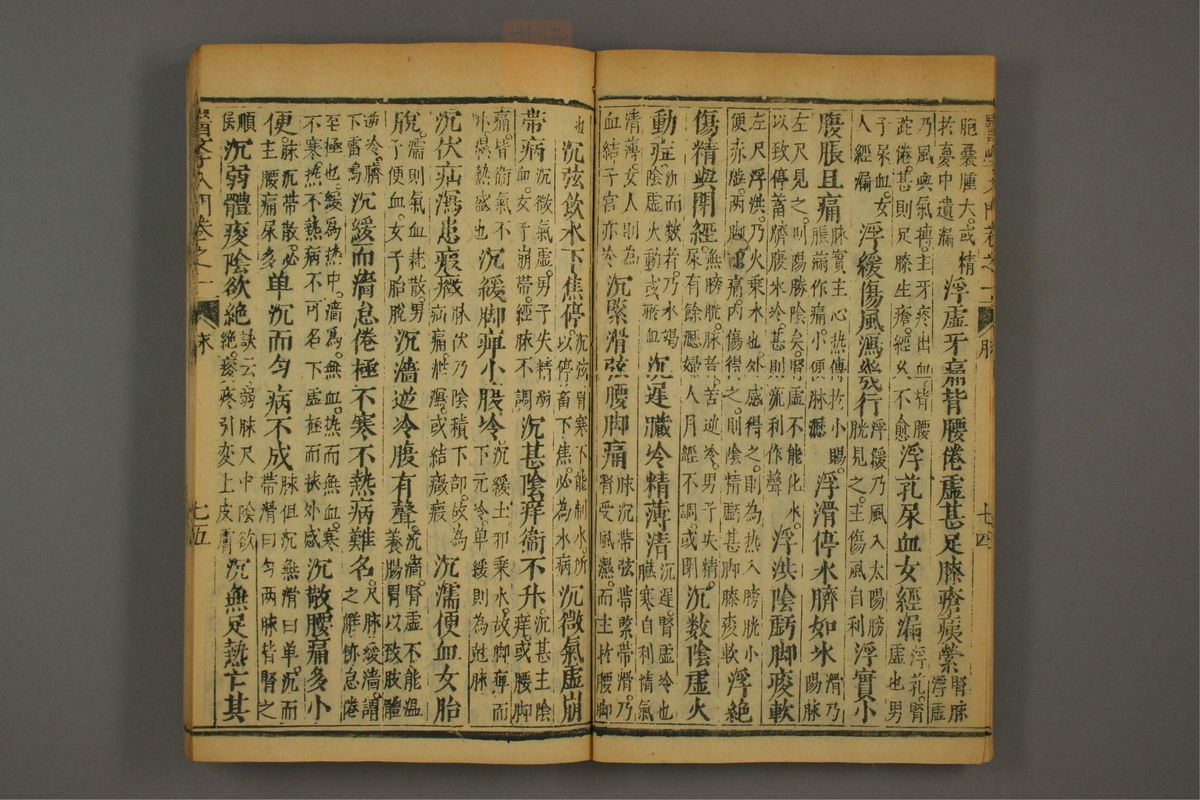 胞囊腫大。或精
於夢中遺漏
浮虛牙痛背腰倦虛甚足膝瘡痍縈
腎脉
浮虛
乃風與氣搏。主牙疼出血。背腰
跎倦。甚則足膝生瘡。經久不愈
浮芤尿血女經漏
浮芤。腎
虛也男
子尿血。女
人經漏
浮緩傷風瀉幾行
浮緩乃風入太陽膀
胱見之。主傷風自利
浮實小
腹脹且痛
脉實主心热傳於小腸
脹滿作痛。小便淋澀
浮滑停水臍如冰
滑乃
陽脉
左尺見之。則陽勝陰矣。腎虛不能化水。
以致停蓄臍腹冰冷。甚則流利作聲
浮洪陰虧脚痠軟
左尺浮洪。乃火乘水也。外感得之。則為热入膀胱小
便赤澁。两脚痛。内傷得之。則陰精虧甚脚膝痠軟
浮絶
傷精與閉經
無膀胱脉。苦逆冷。男子失精。
尿有餘瀝。婦人月經不調。或閉
沉数陰虛火
動症
沉而数者。乃水竭
陰虛火動或血
沉遲臟冷精薄清
沉遲。腎虛冷也
臟寒自利精氣
清薄。女人則為
血結子宮亦冷
沉緊滑弦腰脚痛
脉沉帶弦帶緊帶滑。乃
腎受風濕。而主於腰脚
醫學入門卷之一 脉 七四
也
沉弦飲水下焦停
沉弦腎寒不能制水。所
以停畜下焦。必為水病
沉微氣虛崩
帶病
沉微氣虛。男子失精溺
血。女子崩帶。經脉不調
沉甚陰痒衞不升
沉甚主陰
痒。或腰脚
痛。皆衞氣不
升。濕热盛也
沉緩脚痺小股冷
沉緩土邪乘水。故脚痺而
下元冷。单緩則為尅脉
沉伏疝瀉患瘕癥
脉伏乃陰積下部。故為
疝痛。泄瀉。或結癥瘕
沉濡便血女胎
脫
濡則氣血耗散。男
子便血。女子胎脫
沉濇逆冷腹有聲
沉濇。腎虛不能溫
養腸胃。以致肢體
逆冷。臍
下雷鳴
沉緩而濇怠倦極不寒不熱病難名
尺脉緩濇。謂
之觧㑊。怠倦
至極也。緩爲热中。濇爲無血。热而無血。寒
不寒。热不熱病不可名。下虛極而挾外感
沉散腰痛多小
便
脉沉帶散。必
主腰痛尿多
单沉而匀病不成
脉但沉無滑曰单。沉而
帶滑曰匀。两脉皆腎之
順
候
沉弱體痠陰欲絶
訣云弱脉尺中陰欲
絶。痠疼引变上皮膚
沉無足熱亡其
醫學入門卷之一 脉 七五